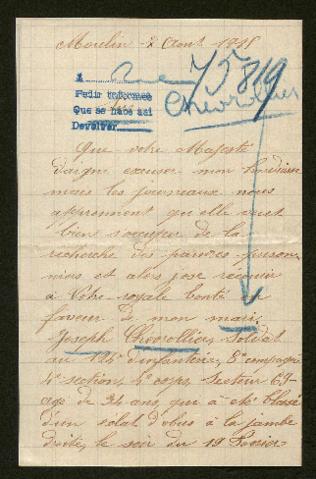 Moulin 2 Aout 1915
1
75819
Chevrollier
Pedir informes
Que se hace asi
Devolver
Que votre Majesté
daigne excuser mon
mais les journeaux nous
apprennent qu'elle veut
bien s'occuper de la
recherche des pauvres prisonn
niers et alors j'ose recourir
à Votre royale bonté en
faveur de mon mari
Joseph Chevrollier, soldat
au 124e d'infanterie, 8e compagnie
4e section, 4e corps, secteur 69
age de 24 ans que a été blessé
d'un eclat d'obus à la jambe
droite, le soir du 19 Fevrier